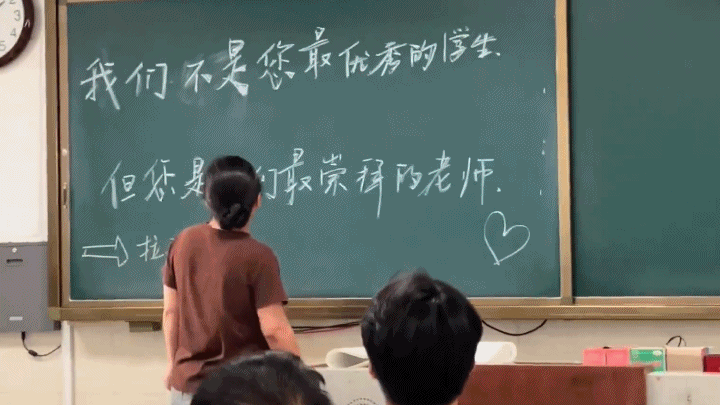 我们不是您最优秀的学生.
但您是们最崇拜的老师.
拉